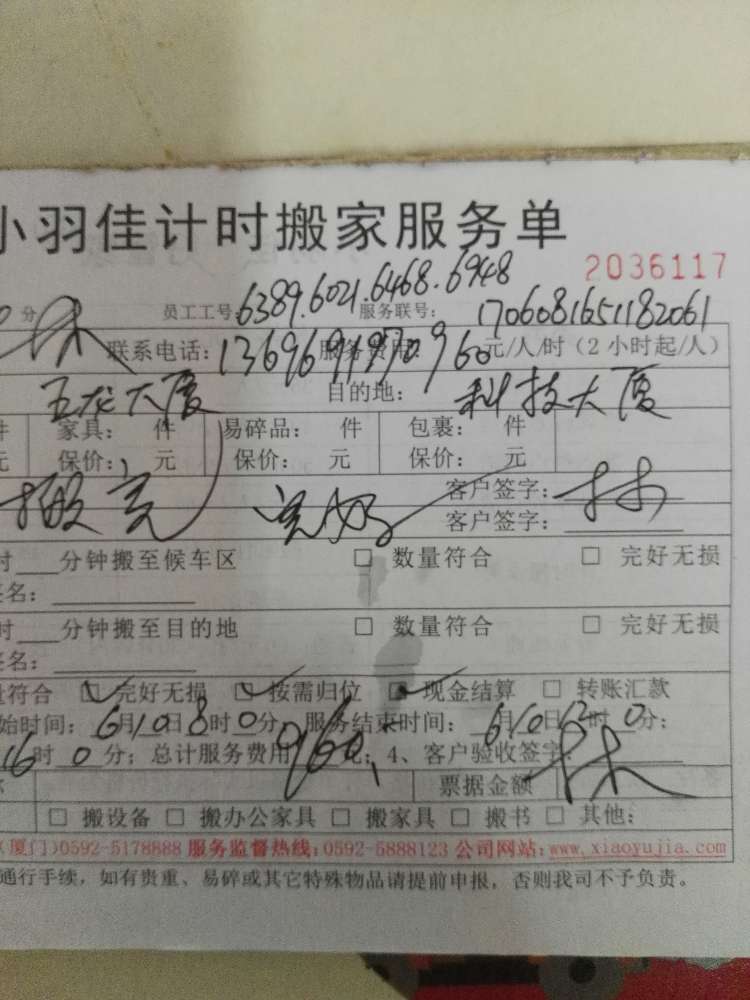 小羽佳计时搬家服务单
2036117
分 员工工号:6389.6021.6468.6948 服务联号:1706081651182061
林 联系电话:13696919970 服务费用:960元/人/时（2小时起/人）
五龙大厦 目的地: 科技大厦
件 家具: 件 易碎品: 件 包裹: 件
元 保价: 元 保价: 元 保价: 元
搬完 完好 客户签字: 林
客户签字:
时 分钟搬至候车区 □ 数量符合 □ 完好无损
签名:
时 分钟搬至目的地 □ 数量符合 □ 完好无损
签名:
量符合 ☑ 完好无损 ☑ 按需归位 ☑ 现金结算 □ 转账汇款
始时间: 6月10日8时0分; 服务结束时间: 6月10日12时0分;
16时0分; 总计服务费用960元; 4、客户验收签字: 林
票据金额
□ 搬设备 □ 搬办公家具 □ 搬家具 □ 搬书 □ 其他:
(厦门)0592-5178888 服务监督热线:0592-5888123 公司网站:www.xiaoyujia.com
通行手续, 如有贵重、易碎或其它特殊物品请提前申报, 否则我司不予负责。